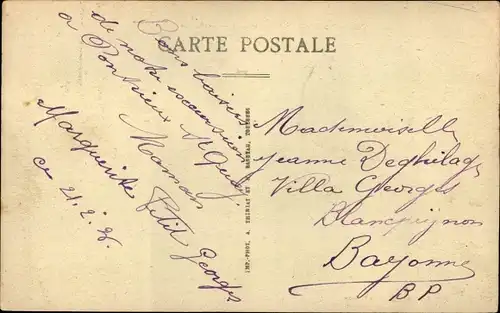 CARTE POSTALE
Bons baisers
de notre excursion
a Pontrieux
Maman
Petit Georges
Marguerite
ce 21.2.26.
IMP.-PHOT. A. THIRIAT ET
TOULOUSE
Mademoiselle
Jeanne
Villa Georges
Blancpignon
Bayonne
BP